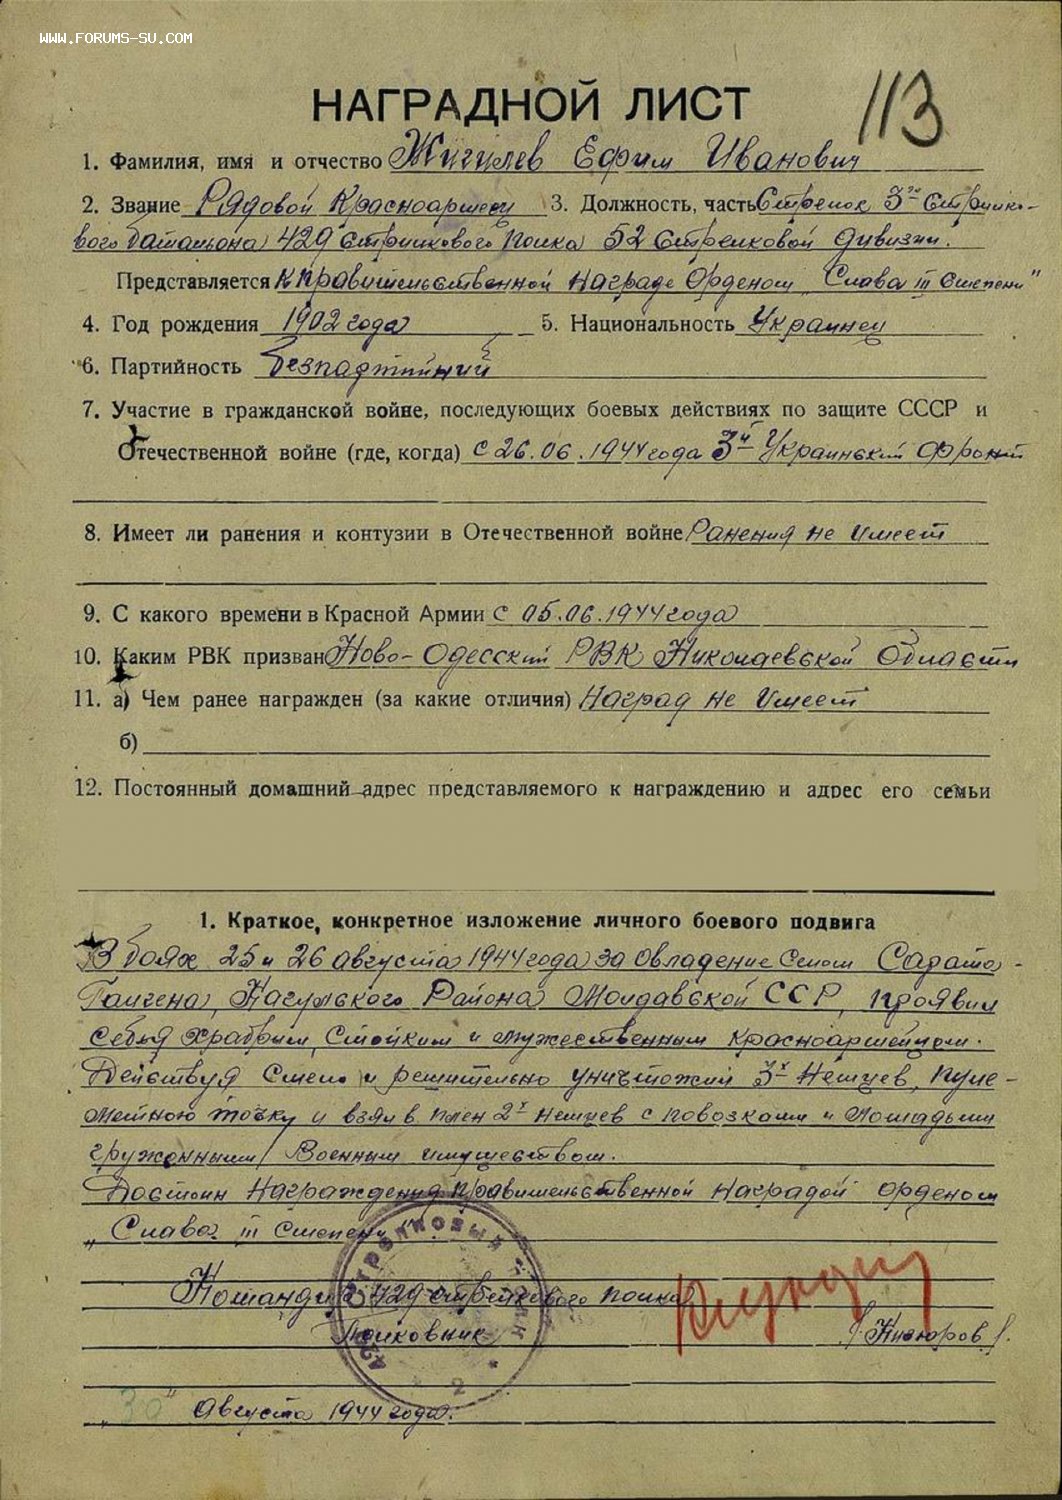 WWW.FORUMS-SU.COM
113
НАГРАДНОЙ ЛИСТ
1. Фамилия, имя и отчество Жигилев Ефим Иванович
2. Звание Рядовой Красноармеец 3. Должность, часть Стрелок 3го Стрелко-
вого батальона 429 Стрелкового Полка 52 Стрелковой дивизии.
Представляется К правительственной награде Орденом „Слава III степени"
4. Год рождения 1902 года 5. Национальность Украинец
6. Партийность безпартийний
7. Участие в гражданской войне, последующих боевых действиях по защите СССР и
Отечественной войне (где, когда) с 26.06.1944 года 3й Украинский Фронт
8. Имеет ли ранения и контузии в Отечественной войне Ранения не имеет
9. С какого времени в Красной Армии с 05.06.1944 года
10. Каким РВК призван Ново-Одесский РВК Николаевской Области
11. а) Чем ранее награжден (за какие отличия) Наград не имеет
б)
12. Постоянный домашний адрес представляемого к награждению и адрес его семьи
1. Краткое, конкретное изложение личного боевого подвига
В боях 25 и 26 августа 1944 года за овладение Селом Сарата-
Галчена, Кагульского Района Молдавской ССР, проявил
себя храбрым, стойким и мужественным красноармейцем.
Действуя Смело и решительно уничтожил 3х Немцев, пуле-
метную точку и взял в плен 2х немцев с повозками и лошадьми
груженными Военным имуществом.
Достоин Награждения правительственной наградой орденом
„Слава III степени".
Командир 429 стрелкового полка
Полковник
„30" Августа 1944 года.
СТРЕЛКОВЫЙ ПОЛК
429
* 2 *